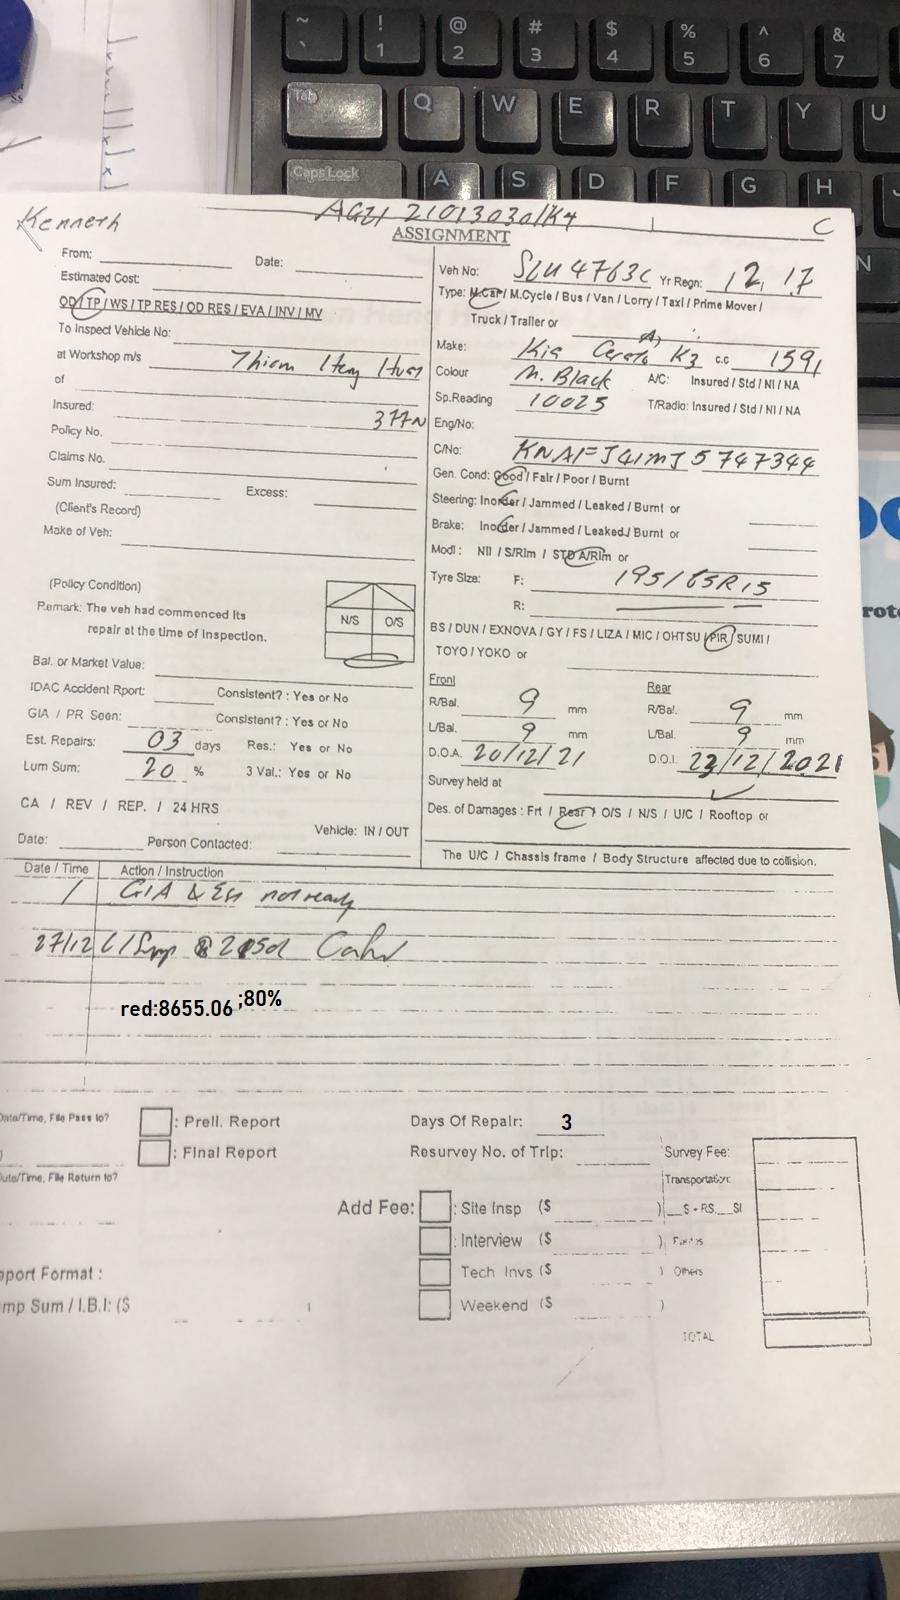 ~ ! @ # $ % ^ &
` 1 2 3 4 5 6 7
Tab Q W E R T Y U
Caps Lock A S D F G H
N
Kenneth
AGZI 21013030/K4
C
ASSIGNMENT
From: Date:
Estimated Cost:
OD / TP / WS / TP RES / OD RES / EVA / INV / MV
To Inspect Vehicle No:
at Workshop m/s Thiam Heng Huat
of
Insured: 377N
Policy No.
Claims No.
Sum Insured: Excess:
(Client's Record)
Make of Veh:
(Policy Condition)
Remark: The veh had commenced its
repair at the time of Inspection.
N/S O/S
Bal. or Market Value:
IDAC Accident Rport: Consistent? : Yes or No
GIA / PR Seen: Consistent? : Yes or No
Est. Repairs: 03 days Res.: Yes or No
Lum Sum: 20 % 3 Val.: Yes or No
CA / REV / REP. / 24 HRS
Vehicle: IN / OUT
Date: Person Contacted:
Veh No: SLU 4763C Yr Regn: 12, 17
Type: M.Car / M.Cycle / Bus / Van / Lorry / Taxi / Prime Mover /
Truck / Trailer or
Make: Kia Cerato K3 (A) c.c 1591
Colour M. Black A/C: Insured / Std / NI / NA
Sp.Reading 10025 T/Radio: Insured / Std / NI / NA
Eng/No:
C/No: KNAFJ41MJ5747344
Gen. Cond: Good / Fair / Poor / Burnt
Steering: Inorder / Jammed / Leaked / Burnt or
Brake: Inorder / Jammed / Leaked / Burnt or
Modi: Nil / S/Rim / STD A/Rim or
Tyre Size: F: 195/65R15
R:
BS / DUN / EXNOVA / GY / FS / LIZA / MIC / OHTSU / PIR / SUMI /
TOYO / YOKO or
Front Rear
R/Bal. 9 mm R/Bal. 9 mm
L/Bal. 9 mm L/Bal. 9 mm
D.O.A. 20/12/21 D.O.I. 23/12/2021
Survey held at
Des. of Damages : Frt / Rear / O/S / N/S / U/C / Rooftop or
The U/C / Chassis frame / Body Structure affected due to collision.
Date / Time Action / Instruction
/ GIA & Est not ready
27/12
red:8655.06 ;80%
Date/Time, File Pass to?
: Prell. Report
: Final Report
Date/Time, File Return to?
Days Of Repair: 3
Resurvey No. of Trip:
Survey Fee:
Transportation:
Add Fee: : Site Insp ($ ) __S + RS.__SI
: Interview ($ )
: Tech Invs ($ ) Others
: Weekend ($ )
TOTAL
port Format :
mp Sum / I.B.I: ($